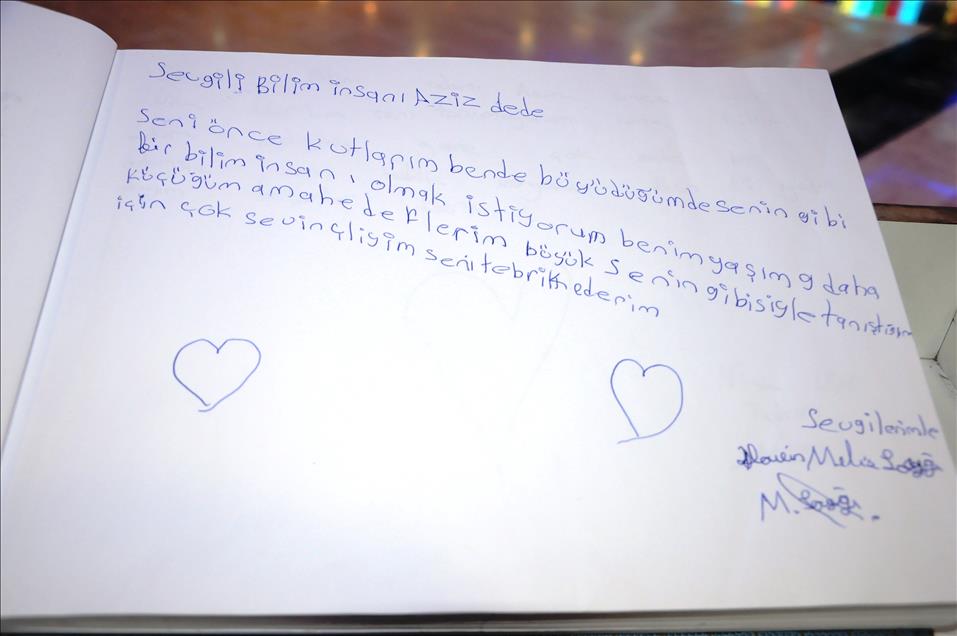 Sevgili Bilim insanı Aziz dede
Seni önce kutlarım bende böyüdüğümde senin gibi
bir bilim insanı olmak istiyorum benim yaşım 9 daha
küçüğüm ama hedeflerim böyük senin gibisiyle tanıştığım
için çok sevinçliyim seni tebrik ederim
Sevgilerimle
Melis
M.